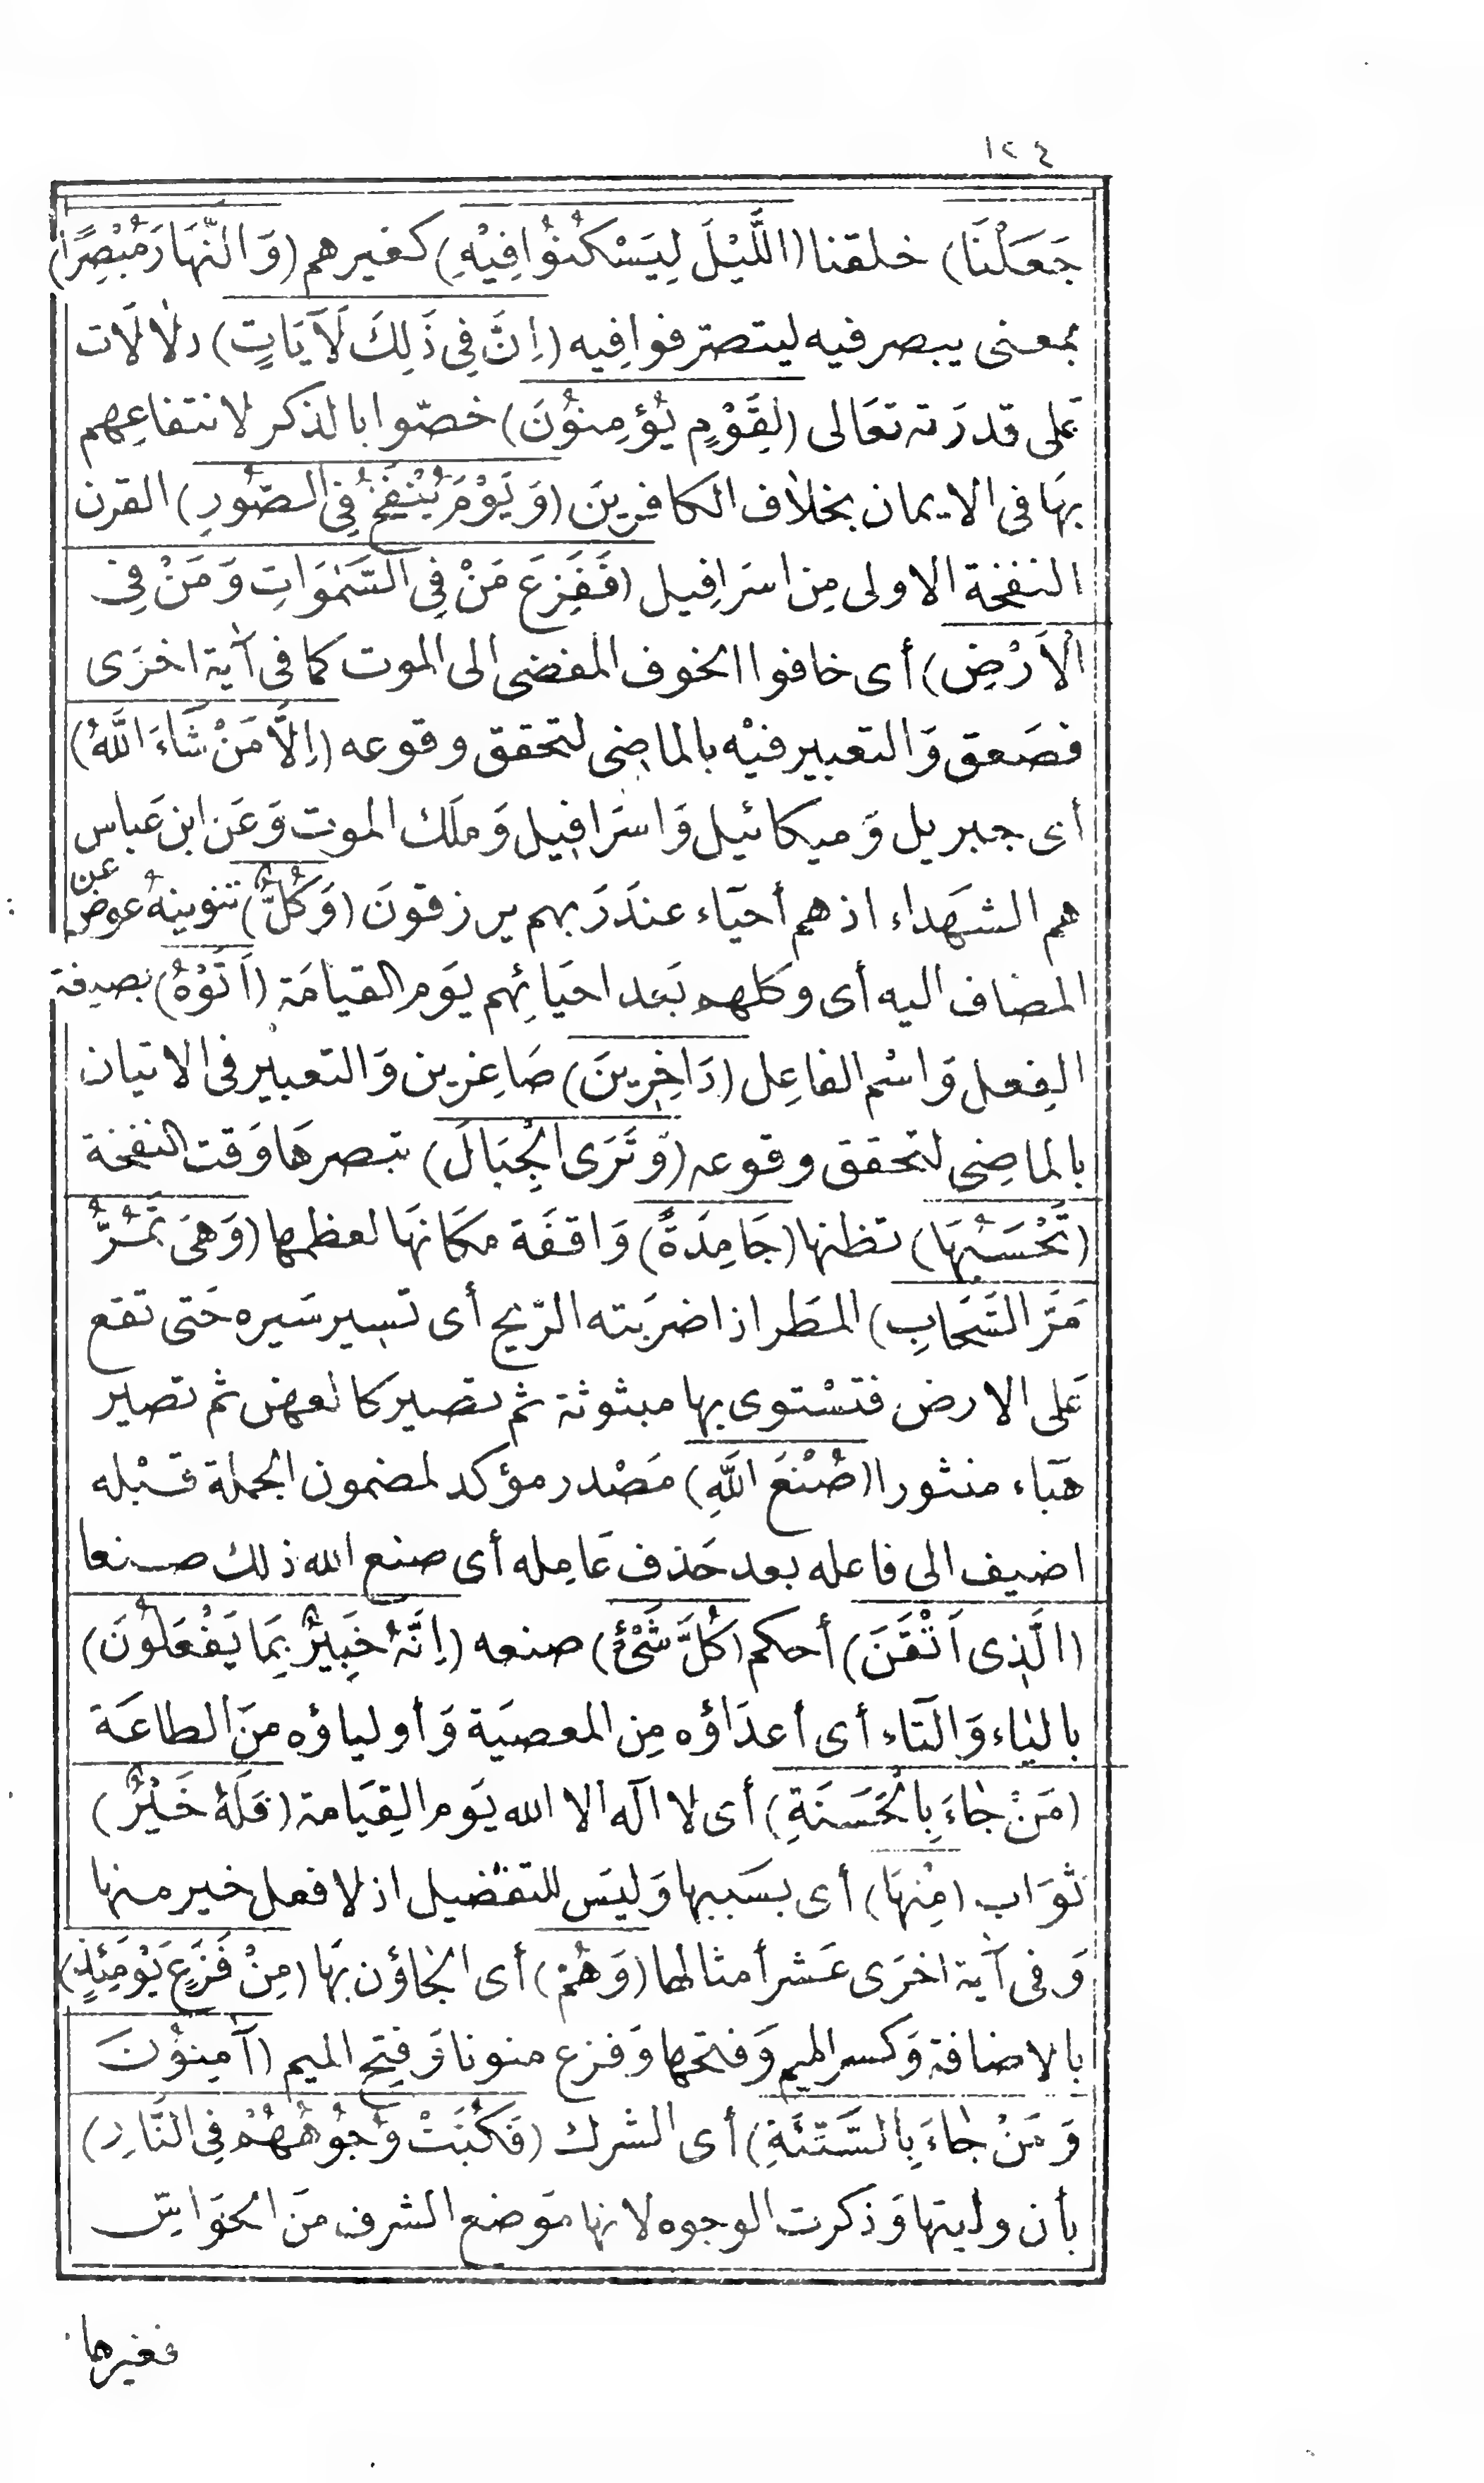 ١٢٤
جَعَلْنَا) خلقنا (اللَّيْلَ لِيَسْكُنُوُا فِيْهِ) كغيرهم (وَالنَّهَارَ مُبْصِرًا)
بمعنى يبصر فيه ليتصرّفوا فِيه (اِنَّ فِى ذَلِكَ لَآيَاتٍ) دلالَات
عَلى قدرَته تعَالى (لِقَوْمٍ يُؤمِنوُنَ) خصّوا بالذكر لانتفاعِهم
بهَا فى الايمان بخلاف الكافرِينَ (وَيَوْمَ يُنْفَخُ فِى الصُّورِ) القرن
النفخة الاولى مِن اسرَافِيل (فَفَزِعَ مَنْ فِى السَّمٰوَاتِ وَمَنْ فِى
الْاَرْضِ) أى خافوا الخوف المفضى الى الموت كما فى آية اخرَى
فصَعق وَالتعبير فيْه بالماضِى لتحقق وقوعه (اِلَّا مَنْ شَاءَ اللَّهُ)
أى جبريل وَميكائيل وَاسرَافِيل وَملَك الموت وَعَن ابن عَباس
هم الشهَداء اذ هم أحيَاء عندَ رَبهم يرزقونَ (وَكُلٌّ) تنوينهُ عوض عن
المضاف اليه أى وكلهم بَعد احيَائِهم يَوم القيامَة (اَتَوْهُ) بصيغة
الفِعل وَاسْم الفاعِل (دَاخِرِينَ) صَاغرِين وَالتعبير فى الاتيان
بالماضِى لتحقق وقوعه (وَتَرَى الْجِبَالَ) تبصرهَا وَقت النفخة
(تَحْسَبُهَا) تظنها (جَامِدَةً) وَاقفَة مكَانهَا لعظمها (وَهِىَ تَمُرُّ
مَرَّ السَّحَابِ) المطَر اذا ضرَبته الرّيح أى تسِير سَيره حَتى تقع
عَلى الارض فتسْتوى بها مبثوثة ثم تصير كالعهن ثم تصير
هَبَاء منثورا (صُنْعَ اللَّهِ) مَصْدر مؤكد لمضمون الجملة قبْله
اضيف الى فاعله بعد حَذف عَامِله أى صنع الله ذلك صنعا
(الَّذِى اَتْقَنَ) أحكم (كُلَّ شَىْءٍ) صنعه (اِنَّهُ خَبِيرٌ بِمَا يَفْعَلُونَ)
باليَاء وَالتاء أى أعدَاؤه مِن المعصيَة وَأولياؤه منَ الطاعَة
(مَنْ جَاءَ بِالْحَسَنَةِ) أى لا اله الا الله يَوم القِيَامة (فَلَهُ خَيْرٌ)
ثوَاب (مِنْهَا) أى بسَببها وَليَس للتفضيل اذ لا فعل خير منها
وَفى آية اخرَى عَشر أمثالها (وَهُمْ) أى الجاؤن بهَا (مِنْ فَزَعٍ يَوْمَئِذٍ)
بالاضافة وَكسر الميم وَفتحها وَفزع منونا وَفتح الميم (آمِنوُنَ
وَمَنْ جَاءَ بِالسَّيِّئَةِ) أى الشرك (فَكُبَّتْ وُجُوُهُهُمْ فِى النَّارِ)
بأن وليتها وَذكرت الوجوه لانها موَضع الشرف منَ الحوَاسّ
فغيرها